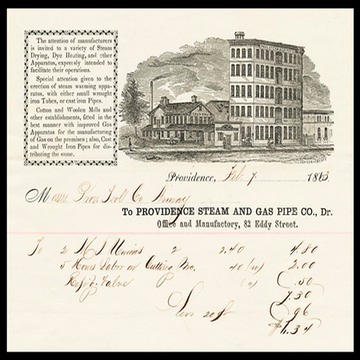 The attention of manufacturers
is invited to a variety of Steam
Drying, Dye Heating, and other
Apparatus, expressly intended to
facilitate their operations.
Special attention given to the
erection of steam warming apparatus,
with either small wrought
iron Tubes, or cast iron Pipes.
Cotton and Woolen Mills and
other establishments, fitted in the
best manner with improved Gas
Apparatus for the manufacturing
of Gas on the premises; also, Cast
and Wrought Iron Pipes for distributing
the same.
Providence, Feb 7 1863
Prov. Tool Co
To PROVIDENCE STEAM AND GAS PIPE CO., Dr.
Office and Manufactory, 82 Eddy Street.
To 2 Unions 2 2.40 4.80
5 Hours Labor on Cutting 40 2.00
Valve .50
7.30
Less 96
6.34